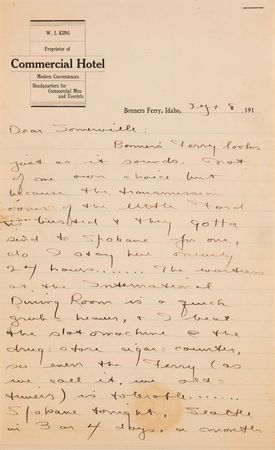 W. J. KING
Proprietor of
Commercial Hotel
Modern Conveniences
Headquarters for
Commercial Men
and Tourists
Bonners Ferry, Idaho, Sept 8 191
Dear Somerville:
Bonners Ferry looks
just as it sounds. Not
of one own choice but
because the transmission
cover of the little Ford
is busted & they gotta
send to Spokane for one,
do I stay here nearly
24 hours....... The waitress
at the International
Dining Room is a quick
grub heaver, & I beat
the slot machine @ the
drug-store cigar-counter,
so even the Ferry (as
we call it, we old-
timers) is tolerable.......
Spokane tonight, Seattle
in 3 or 4 days, a month